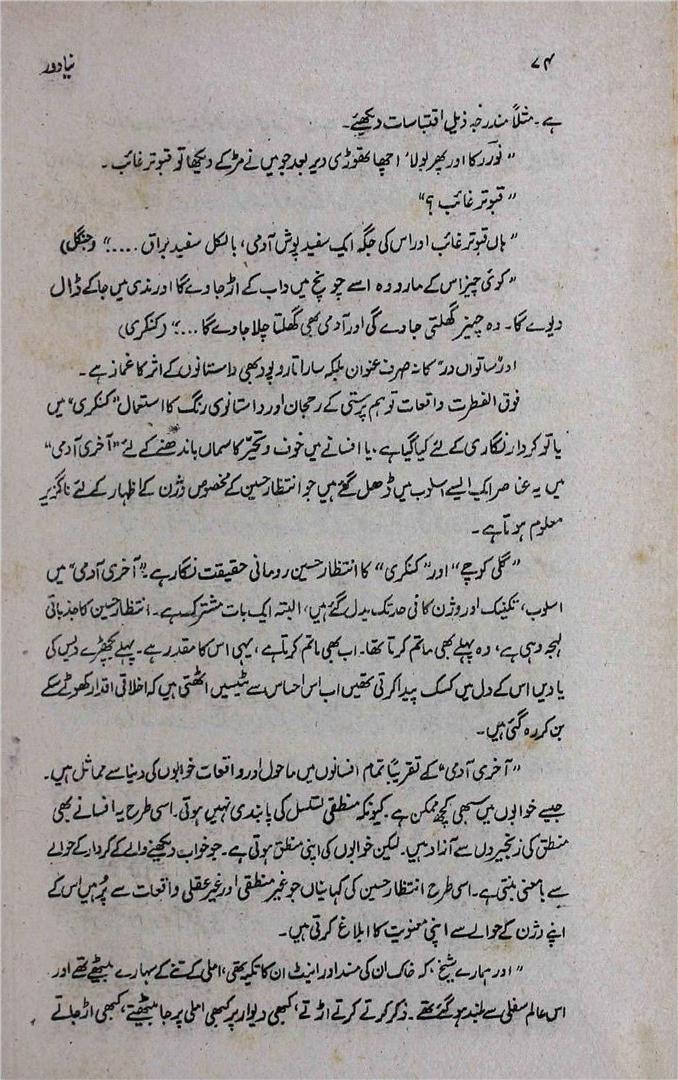 ۷۴ نیا دور
ہے۔ مثلاً مندرجہ ذیل اقتباسات دیکھئے۔
"نور رکا اور پھر بولا' اچھا تھوڑی دیر بعد جو میں نے مڑ کے دیکھا تو قبوتر غائب۔
"قبوتر غائب ؟"
"ہاں قبوتر غائب اور اس کی جگہ ایک سفید پوش آدمی، بالکل سفید براق ....." (جنگل)
"کوئی چیز اس کے مارو وہ اسے چونچ میں داب کے اڑ جاوے گا اور ندی میں جا کے ڈال
دیوے گا۔ وہ چیز گھلتی جاوے گی اور آدمی بھی گھلتا چلا جاوے گا ...." (کنکری)
اور "ساتواں در" کا نہ صرف عنوان بلکہ سارا تار و پود بھی داستانوں کے اثر کا غماز ہے۔
فوق الفطرت واقعات توہم پرستی کے رحجان اور داستانوی رنگ کا استعمال "کنکری" میں
یا تو کردار نگاری کے لئے کیا گیا ہے، یا افسانے میں خوف و تحیّر کا سماں باندھنے کے لئے "آخری آدمی"
میں یہ عناصر ایک ایسے اسلوب میں ڈھل گئے ہیں جو انتظار حسین کے مخصوص وژن کے اظہار کے لئے ناگزیر
معلوم ہوتا ہے۔
"گلی کوچے" اور "کنکری" کا انتظار حسین رومانی حقیقت نگار ہے۔ "آخری آدمی" میں
اسلوب، تکنیک اور وژن کافی حد تک بدل گئے ہیں، البتہ ایک بات مشترک ہے۔ انتظار حسین کا جذباتی
لہجہ وہی ہے، وہ پہلے بھی ماتم کرتا تھا۔ اب بھی ماتم کرتا ہے، یہی اس کا مقدر ہے۔ پہلے بچھڑے دیس کی
یادیں اس کے دل میں کسک پیدا کرتی تھیں اب اس احساس سے ٹیسیں اٹھتی ہیں کہ اخلاقی اقدار کھوٹے سکے
بن کر رہ گئی ہیں۔
"آخری آدمی" کے تقریباً تمام افسانوں میں ماحول اور واقعات خوابوں کی دنیا سے مماثل ہیں۔
جیسے خوابوں میں سبھی کچھ ممکن ہے۔ کیونکہ منطقی تسلسل کی پابندی نہیں ہوتی۔ اسی طرح یہ افسانے بھی
منطق کی زنجیروں سے آزاد ہیں۔ لیکن خوابوں کی اپنی منطق ہوتی ہے۔ جو خواب دیکھنے والے کے کردار کے حوالے
سے بامعنی بنتی ہے۔ اسی طرح انتظار حسین کی کہانیاں جو غیر منطقی اور غیر عقلی واقعات سے پُر ہیں اس کے
اپنے وژن کے حوالے سے اپنی معنویت کا ابلاغ کرتی ہیں۔
"اور ہمارے شیخ، کہ خاک ان کی مسند اور اینٹ ان کا تکیہ تھی، املی کے تنے کے سہارے بیٹھے تھے اور
اس عالم سفلی سے بلند ہو گئے تھے۔ ذکر کرتے کرتے اڑتے، کبھی دیوار پر کبھی املی پر جا بیٹھتے، کبھی اڑ جاتے